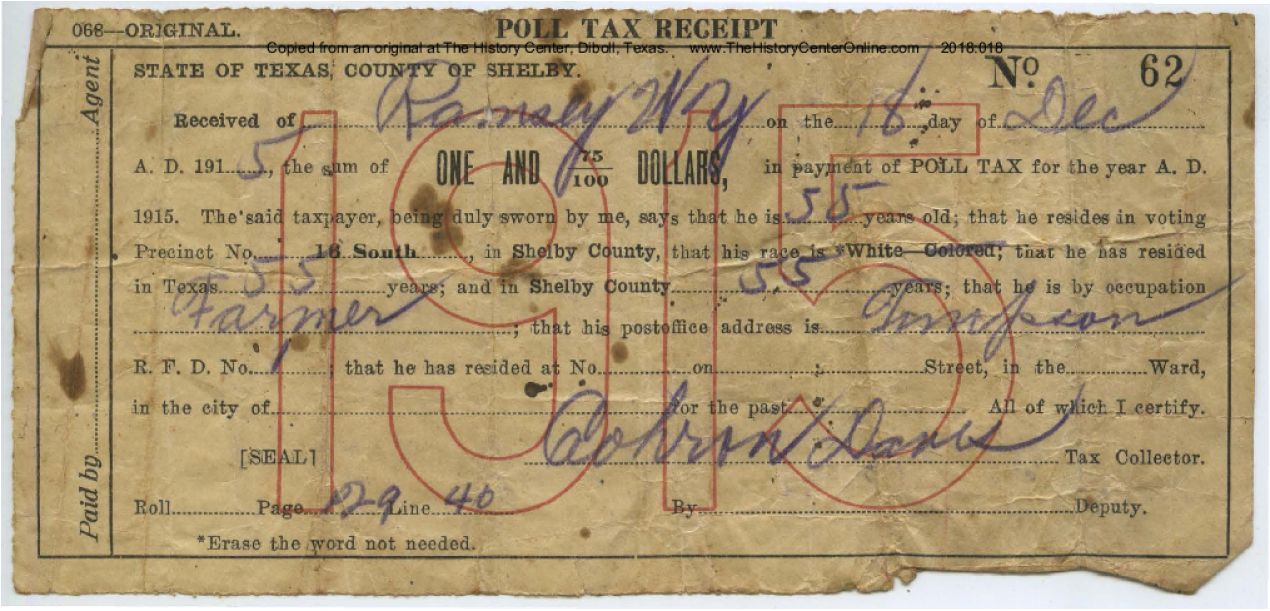 068—ORIGINAL. POLL TAX RECEIPT
Copied from an original at The History Center, Diboll, Texas. www.TheHistoryCenterOnline.com 2018:018
STATE OF TEXAS, COUNTY OF SHELBY. No. 62
Received of Ramsey Wy on the 18 day of Dec
A. D. 1915, the sum of ONE AND 75/100 DOLLARS, in payment of POLL TAX for the year A. D.
1915. The said taxpayer, being duly sworn by me, says that he is 55 years old; that he resides in voting
Precinct No. 16 South, in Shelby County, that his race is *White—Colored; that he has resided
in Texas 55 years; and in Shelby County 55 years; that he is by occupation
Farmer; that his postoffice address is Timpson
R. F. D. No. 1; that he has resided at No. on Street, in the Ward,
in the city of for the past All of which I certify.
[SEAL] Davis Tax Collector.
Roll Page 129 Line 40 By Deputy.
*Erase the word not needed.
Paid by Agent
1915